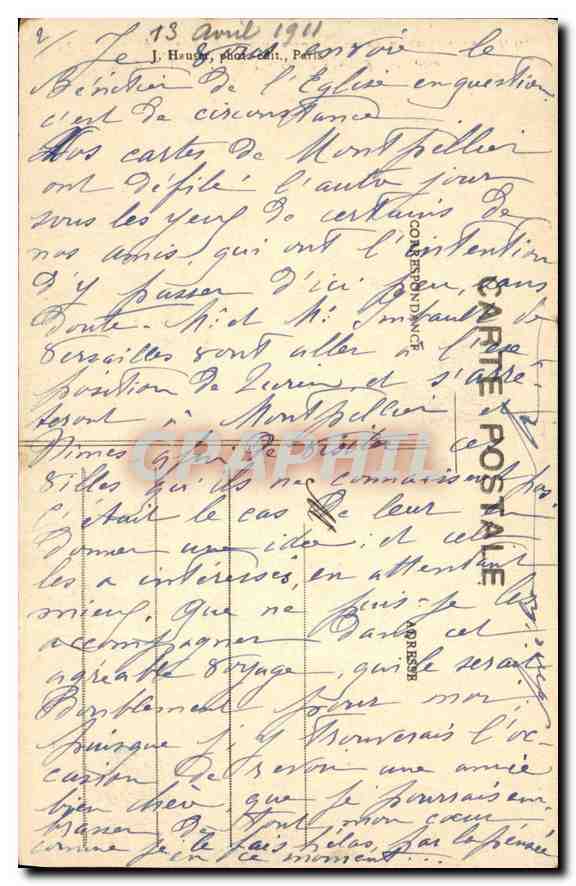 2/ 13 avril 1911
Je vous envoie le
J. Hauser, phot.-édit., Paris
Bénitier de l'Eglise en question
c'est de circonstance
Nos cartes de Montpellier
ont défilé l'autre jour
sous les yeux de certains de
nos amis, qui ont l'intention
d'y passer d'ici peu, sans
doute. Mr et Me Imbault de
Versailles vont aller à l'Ex
position de Turin et s'arrê-
teront à Montpellier et
Nimes afin de visiter ces
villes qu'ils ne connaissent pas
c'était le cas de leur en
donner une idée, et cela
les a intéressés, en attendant
mieux. Que ne puis-je les
accompagner dans cet
agréable voyage, qui le serait
doublement pour moi,
puisque j'y trouverais l'oc-
casion de revoir une amie
bien chère, que je pourrais em-
brasser de tout mon cœur
comme je le fais hélas, par la pensée
en ce moment...
CARTE POSTALE
CORRESPONDANCE
ADRESSE
CPAPHIL